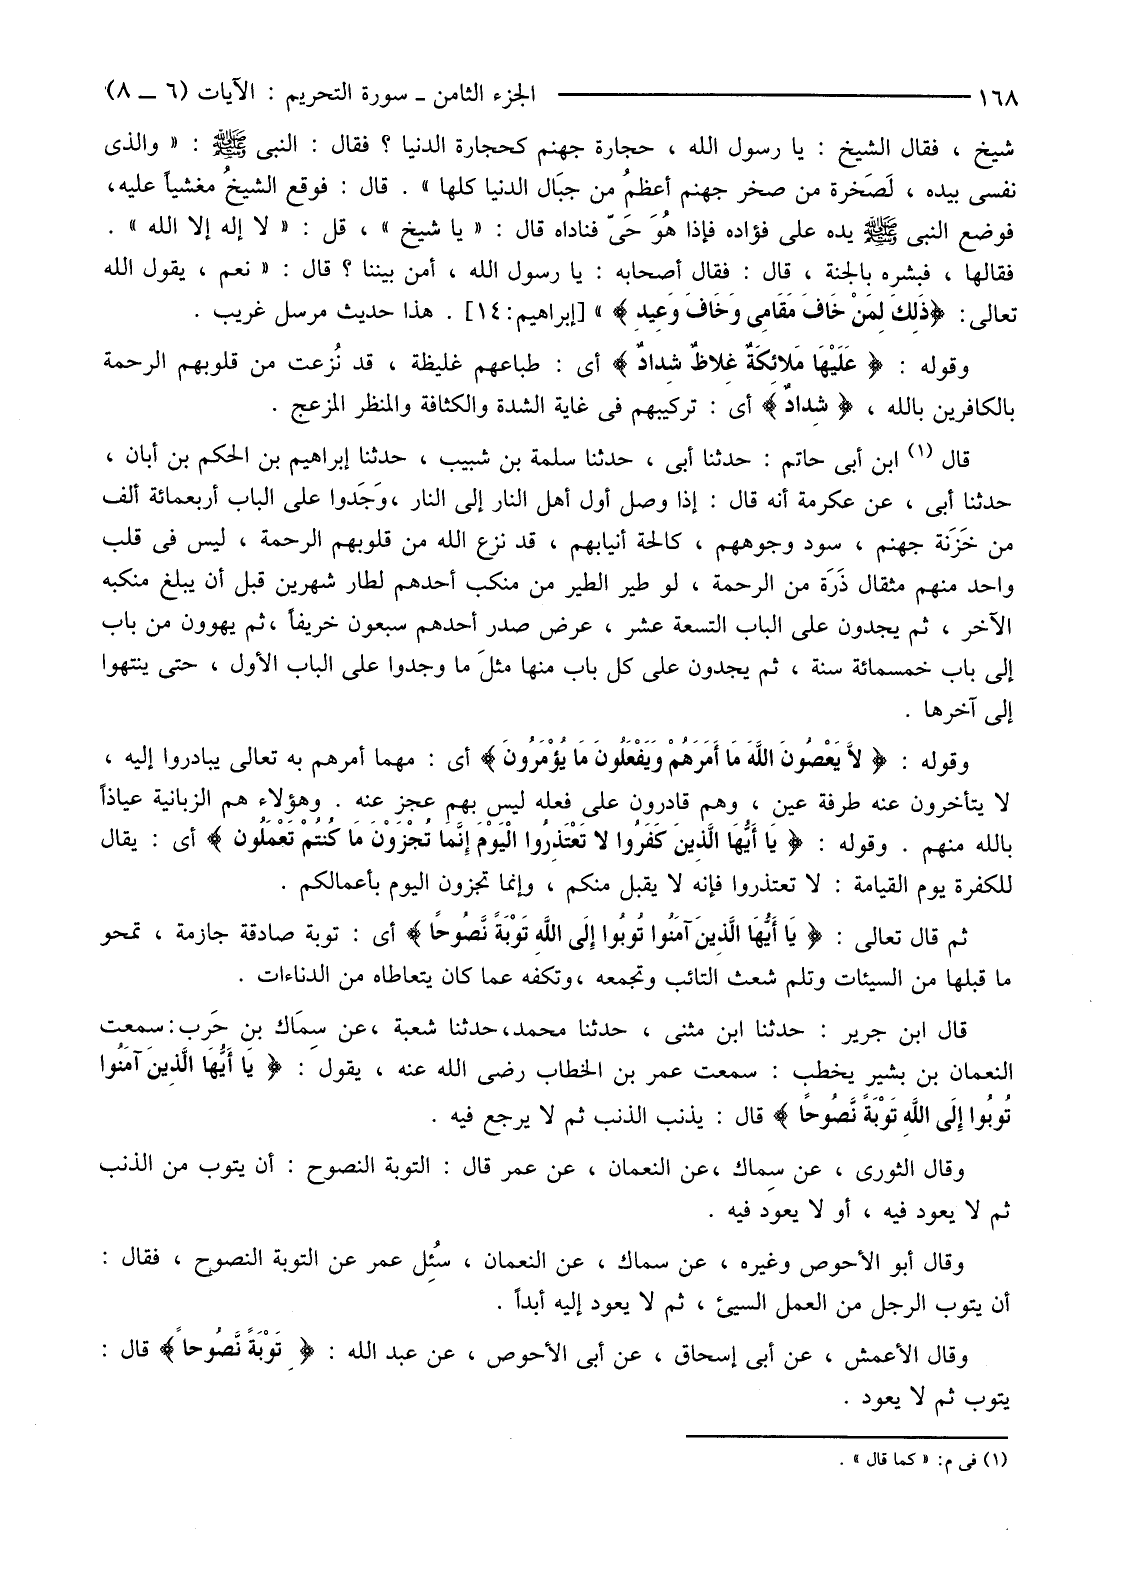 ١٦٨ ـــــــــــــــــ الجزء الثامن ـ سورة التحريم : الآيات (٦ ـ ٨)
شيخ ، فقال الشيخ : يا رسول الله ، حجارة جهنم كحجارة الدنيا ؟ فقال : النبى ﷺ : « والذى
نفسى بيده ، لَصَخرة من صخر جهنم أعظمُ من جبَال الدنيا كلها » . قال : فوقع الشيخُ مغشياً عليه،
فوضع النبى ﷺ يده على فؤاده فإذا هُوَ حَىّ فناداه قال : « يا شيخ » ، قل : « لا إله إلا الله » .
فقالها ، فبشره بالجنة ، قال : فقال أصحابه : يا رسول الله ، أمن بيننا ؟ قال : « نعم ، يقول الله
تعالى: ﴿ذَلِكَ لِمَنْ خَافَ مَقَامِى وَخَافَ وَعِيدِ ﴾ » [إبراهيم:١٤] . هذا حديث مرسل غريب .
وقوله : ﴿ عَلَيْهَا مَلائِكَةٌ غِلاظٌ شِدادٌ ﴾ أى : طباعهم غليظة ، قد نُزعت من قلوبهم الرحمة
بالكافرين بالله ، ﴿ شِدادٌ ﴾ أى : تركيبهم فى غاية الشدة والكثافة والمنظر المزعج .
قال (١) ابن أبى حاتم : حدثنا أبى ، حدثنا سلمة بن شبيب ، حدثنا إبراهيم بن الحكم بن أبان ،
حدثنا أبى ، عن عكرمة أنه قال : إذا وصل أول أهل النار إلى النار ،وَجَدوا على الباب أربعمائة ألف
من خَزَنة جهنم ، سود وجوههم ، كالحة أنيابهم ، قد نزع الله من قلوبهم الرحمة ، ليس فى قلب
واحد منهم مثقال ذَرَة من الرحمة ، لو طير الطير من منكب أحدهم لطار شهرين قبل أن يبلغ منكبه
الآخر ، ثم يجدون على الباب التسعة عشر ، عرض صدر أحدهم سبعون خريفاً ،ثم يهوون من باب
إلى باب خمسمائة سنة ، ثم يجدون على كل باب منها مثلَ ما وجدوا على الباب الأول ، حتى ينتهوا
إلى آخرها .
وقوله : ﴿ لاَّ يَعْصُونَ اللَّهَ مَا أَمَرَهُمْ وَيَفْعَلُونَ مَا يُؤْمَرُونَ ﴾ أى : مهما أمرهم به تعالى يبادروا إليه ،
لا يتأخرون عنه طرفة عين ، وهم قادرون على فعله ليس بهم عجز عنه . وهؤلاء هم الزبانية عياذاً
بالله منهم . وقوله : ﴿ يَا أَيُّهَا الَّذِينَ كَفَرُوا لا تَعْتَذِرُوا الْيَوْمَ إِنَّمَا تُجْزَوْنَ مَا كُنتُمْ تَعْمَلُونَ ﴾ أى : يقال
للكفرة يوم القيامة : لا تعتذروا فإنه لا يقبل منكم ، وإنما تجزون اليوم بأعمالكم .
ثم قال تعالى : ﴿ يَا أَيُّهَا الَّذِينَ آمَنُوا تُوبُوا إِلَى اللَّهِ تَوْبَةً نَّصُوحًا ﴾ أى : توبة صادقة جازمة ، تمحو
ما قبلها من السيئات وتلم شعث التائب وتجمعه ،وتكفه عما كان يتعاطاه من الدناءات .
قال ابن جرير : حدثنا ابن مثنى ، حدثنا محمد،حدثنا شعبة ،عن سِمَاك بن حَرب:سمعت
النعمان بن بشير يخطب : سمعت عمر بن الخطاب رضى الله عنه ، يقول : ﴿ يَا أَيُّهَا الَّذِينَ آمَنُوا
تُوبُوا إِلَى اللَّهِ تَوْبَةً نَّصُوحًا ﴾ قال : يذنب الذنب ثم لا يرجع فيه .
وقال الثورى ، عن سِماك ،عن النعمان ، عن عمر قال : التوبة النصوح : أن يتوب من الذنب
ثم لا يعود فيه ، أو لا يعود فيه .
وقال أبو الأحوص وغيره ، عن سماك ، عن النعمان ، سُئِل عمر عن التوبة النصوح ، فقال :
أن يتوب الرجل من العمل السيئ ، ثم لا يعود إليه أبداً .
وقال الأعمش ، عن أبى إسحاق ، عن أبى الأحوص ، عن عبد الله : ﴿ تَوْبَةً نَّصُوحاً ﴾ قال :
يتوب ثم لا يعود .
(١) فى م: « كما قال » .